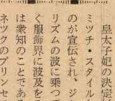 皇太子妃の決定
ミツチ・スタイル
のが宣伝され、ジ
リズムの波に乗つ
く服飾界に波及を
は衆知のことであ
ネツクのプリンセ